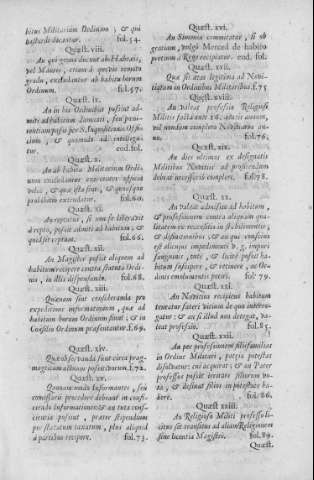 bitus Militarium Ordinum; & qui
bastardi dicantur. fol.54.
Quæst. viii.
An qui genus ducunt ab Hebræis,
vel Mauris, etiam à quovis remoto
gradu, excludantur ab habitu horum
Ordinum. fol.57.
Quæst. ix.
An in his Ordinibus possint ad-
mitti ad habitum damnati, seu
S. Inquisitionis Offici
& quomodo id intellega-
tur. eod. fol.
Quæst. x.
An ab habitu Militarium Ordi-
num excludantur exercentes officia
vilia, & quæ ista sint, & quousque
prohibitio extendatur. fol.60.
Quæst. xi.
An rogatus, si non sit liber à
repto, possit admitti ad habitum, &
quid sit reptum. fol.66.
Quæst. xii.
An Magister possit aliquem ad
habitum recipere contra statuta Ordi-
nis, in illis dispensando. fol.68.
Quæst. xiii.
Quænam sint consideranda pro
expediendis informationibus, quæ ad
habitum horum Ordinum fiunt; & in
Consilio Ordinum præsentantur. f.69.
Quæst. xiv.
Quæ observanda sunt circa prag-
maticam actuum positivorum. f.72.
Quæst. xv.
Quomodo Informantes, seu
comissarii procedere debeant in confi-
ciendis Informationibus & an tuta cons-
cientia possint, præter stipendium
per statutum taxatum, plus aliquid
à partibus recipere. fol.73.
Quæst. xvi.
An Simonia committatur, si ob
gratiam, vulgò Merced de habito
pretium à Rege recipiatur. eod. fol.
Quæst. xvii.
Quæ sit ætas legitima ad Novi-
tiatum in Ordinibus Militaribus. f.75
Quæst. xviii.
An valeat professio Religiosi
Militis facta ante 16. ætatis annum,
vel nondum completo Novitiatus an-
no. fol.76.
Quæst. xix.
An dies ultimus ex designatis
Militibus Novitiis ad proficiendum
debeat necessariò complere. fol.78.
Quæst. xx.
An valeat admissio ad habitum,
& professionem contra aliquam qua-
litatem ex necessitatis in stabilimentis,
& dissimulationibus; & an qui conscius
est alicujus impedimenti v. g. impuri
sanguinis, tutè, & licitè possit ha-
bitum suscipere, & retinere, ac Or-
dinis emolumentis potiri. fol. 79.
Quæst. xxi.
An Novitius recipiens habitum
teneatur fateri vitium de quo interro-
gatur; & an si illud non detegat, va-
leat professio. fol.85.
Quæst. xxii.
An per professionem filiifamilias
in Ordine Militari, patria potestas
dissolvatur: cui acquirat; & an Pater
professus possit irritare filiorum vo-
ta, & desinat filios in potestate ha-
bere. fol. 86.
Quæst. xxiii.
An Religioso Militi professo li-
citus sit transitus ad aliam Religionem
sine licentia Magistri. fol.89.
Quæst.